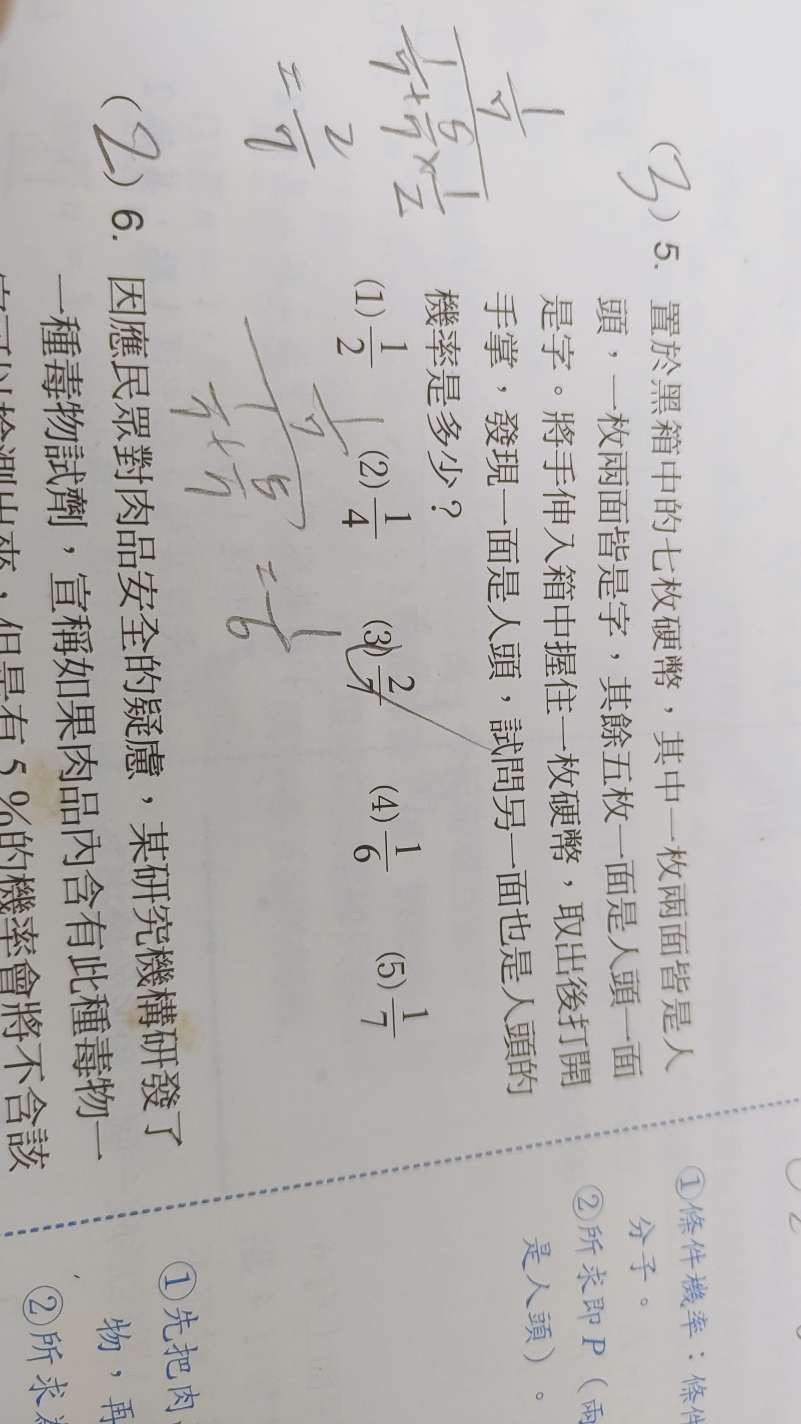 (3) 5. 置於黑箱中的七枚硬幣，其中一枚兩面皆是人
頭，一枚兩面皆是字，其餘五枚一面是人頭一面
是字。將手伸入箱中握住一枚硬幣，取出後打開
手掌，發現一面是人頭，試問另一面也是人頭的
機率是多少？
(1) 1/2 (2) 1/4 (3) 2/7 (4) 1/6 (5) 1/7
1/7
1/7 + 5/7 × 1/2
= 2/7
1/7
1/7 + 5/7
= 1/6
(2) 6. 因應民眾對肉品安全的疑慮，某研究機構研發了
一種毒物試劑，宣稱如果肉品內含有此種毒物一
定可以檢測出來，但是有 5 %的機率會將不含該
①條件機率：條件
分子。
②所求即 P（兩
是人頭）。
①先把肉
物，再
②所求